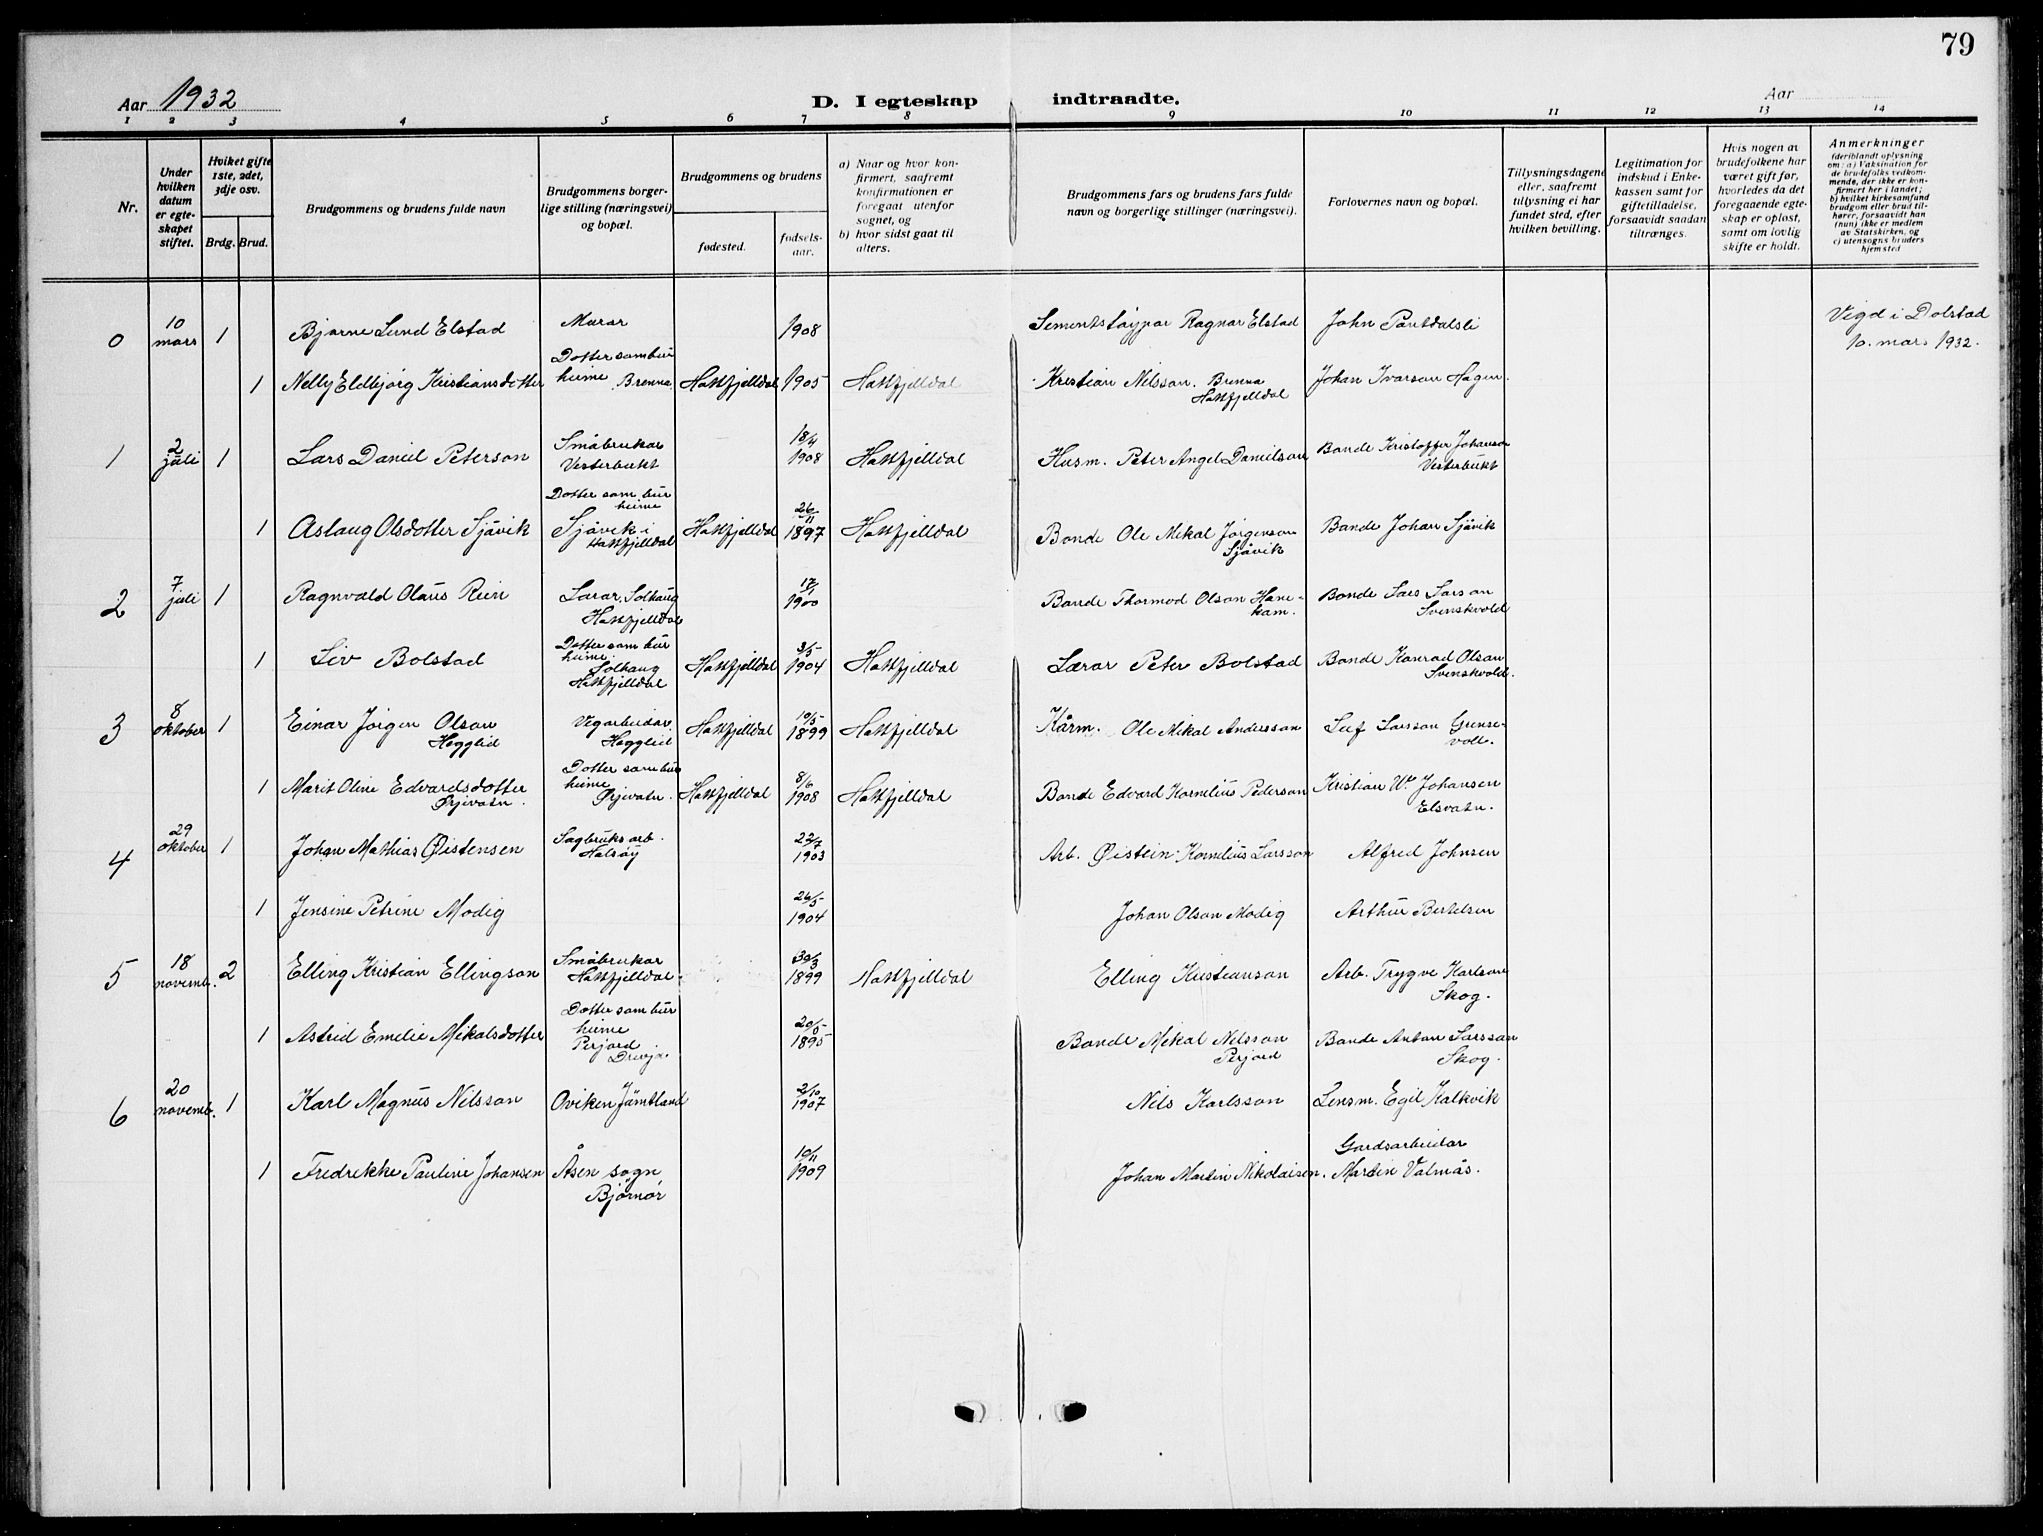 79
Aar 1932
D. I egteskap indtraadte.
Aar
1 2 3 4 5 6 7 8 9 10 11 12 13 14
Nr.
Under hvilken datum er egteskapet stiftet.
Hvilket gifte 1ste, 2det, 3dje osv.
Brdg. Brud.
Brudgommens og brudens fulde navn
Brudgommens borgerlige stilling (næringsvei) og bopæl.
Brudgommens og brudens
fødested.
fødselsaar.
a) Naar og hvor konfirmert, saafremt konfirmationen er foregaat utenfor sognet, og
b) hvor sidst gaat til alters.
Brudgommens fars og brudens fars fulde navn og borgerlige stillinger (næringsvei).
Forlovernes navn og bopæl.
Tillysningsdagene eller, saafremt tillysning ei har fundet sted, efter hvilken bevilling.
Legitimation for indskud i Enkekassen samt for giftetilladelse, forsaavidt saadan tiltrænges.
Hvis nogen av brudefolkene har været gift før, hvorledes da det foregaaende egteskap er opløst, samt om lovlig skifte er holdt.
Anmerkninger (deriblandt oplysning om: a) Vaksination for de brudefolks vedkommende, der ikke er konfirmert her i landet; b) hvilket kirkesamfund brudgom eller brud tilhører, forsaavidt han (hun) ikke er medlem av Statskirken, og c) utensogns bruders hjemsted
0 10 mars 1 Bjarne Lund Elstad Murar 1908 Sementstøypar Ragnar Elstad John Pantdalsli Vigd i Dolstad 10. mars 1932.
1 Nelly Eldbjørg Kristiansdotter Dotter som bur heime Brenna Hattfjelldal 1905 Hattfjelldal Kristian Nilsson. Brenna Hattfjelldal Johan Ivarson Hagen
1 2 juli 1 Lars Daniel Peterson Småbrukar Vesterbukt 18/4 1908 Hattfjelldal Husm. Peter Angel Danielson Bonde Kristoffer Johanson Vesterbukt
1 Aslaug Olsdotter Sjåvik Dotter som bur heime Sjåvik i Hattfjelldal Hattfjelldal 26/11 1897 Hattfjelldal Bonde Ole Mikal Jørgenson Sjåvik Bonde Johan Sjåvik
2 7 juli 1 Ragnvald Olaus Rein Lærar, Solhaug Hattfjelldal 17/1 1900 Bonde Thormod Olson Hanekam. Bonde Lars Larson Svenskvold
1 Liv Bolstad Dotter som bur heime. Solhaug Hattfjelldal Hattfjelldal 3/5 1904 Hattfjelldal Lærar Peter Bolstad Bonde Konrad Olson Svenskvold.
3 8 oktober 1 Einar Jørgen Olson Hegglid Vegarbeidar Hegglid Hattfjelldal 10/5 1899 Hattfjelldal Kårm. Ole Mikal Andersson Leif Larsson Grensevoll.
1 Marit Oline Edvardsdotter Ørjevatn. Dotter som bur heime Ørjevatn. Hattfjelldal 8/6 1908 Hattfjelldal Bonde Edvard Kornelius Pederson Kristian W. Johansen Elsvatn.
4 29 oktober 1 Johan Mathias Øistensen Sagbruksarb. Halsøy 22/7 1903 Arb. Øistein Kornelius Larsson Alfred Johnsen
1 Jensine Petrine Modig 26/5 1904 Johan Olson Modig Arthur Bertelsen
5 18 novemb. 2 Elling Kristian Ellingson Småbrukar Hattfjelldal 30/3 1899 Hattfjelldal Elling Kristianson Arb. Trygve Karlson Skog.
1 Astrid Emelie Mikalsdotter Dotter som bur heime Perjord Drevja. 20/5 1895 Bonde Mikal Nilsson Perjord Bonde Anton Larsson Skog.
6 20 novemb. 1 Karl Magnus Nilsson Oviken Jämtland 2/10 1907 Nils Karlsson Lensm. Egil Kalkvik
1 Fredrikke Pauline Johansen Åsen sogn Bjørnør 10/11 1909 Johan Martin Nikolaisen. Gardsarbeidar Martin Valmås.